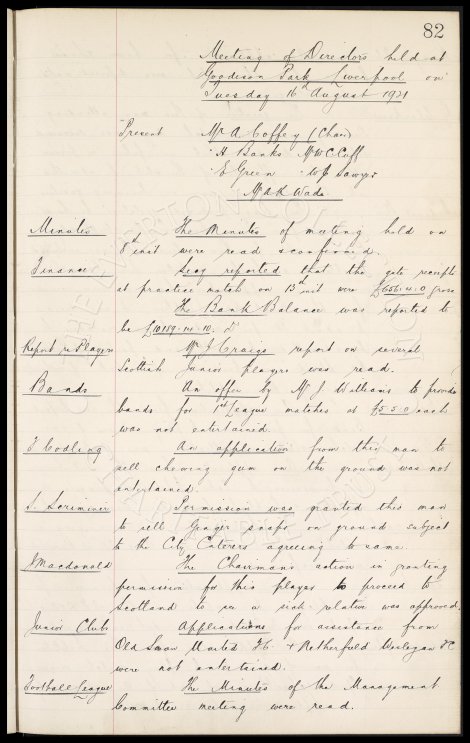 82
Meeting of Directors held at
Goodison Park Liverpool on
Tuesday 16th August 1921
Present Mr A. Coffey (Chair)
" H Banks Mr W. C. Cuff
" E Green " W J Sawyer
Mr A R Wade
Minutes The Minutes of meeting held on
8th inst were read & confirmed.
Finance Secy reported that the gate receipts
at practice match on 13th inst were £656.4.0 gross
The Bank Balance was reported to
be £10189.14.10.
Report re Players Mr J Craigs report on several
Scottish Junior players was read.
Bands An offer by Mr J Williams to provide
bands for 1st League matches at £5.5.0 each
was not entertained.
T Codling An application from this man to
sell chewing gum on the ground was not
entertained.
S. Scriminer Permission was granted this man
to sell Ginger snaps on ground subject
to the City Caterers agreeing to same.
J Macdonald The Chairmans action in granting
permission for this player to proceed to
Scotland to see a sick relative was approved.
Junior Clubs Applications for assistance from
Old Swan United F.C. + Netherfield Wesleyan FC
were not entertained.
Football League The Minutes of the Management
Committee meeting were read.